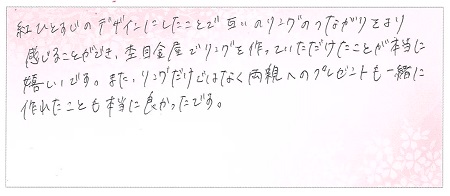 紅ひとすじのデザインにしたことで互いのリングのつながりをより
感じることができ、杢目金屋でリングを作っていただけたことが本当に
嬉しいです。また、リングだけではなく両親へのプレゼントも一緒に
作れたことも本当に良かったです。